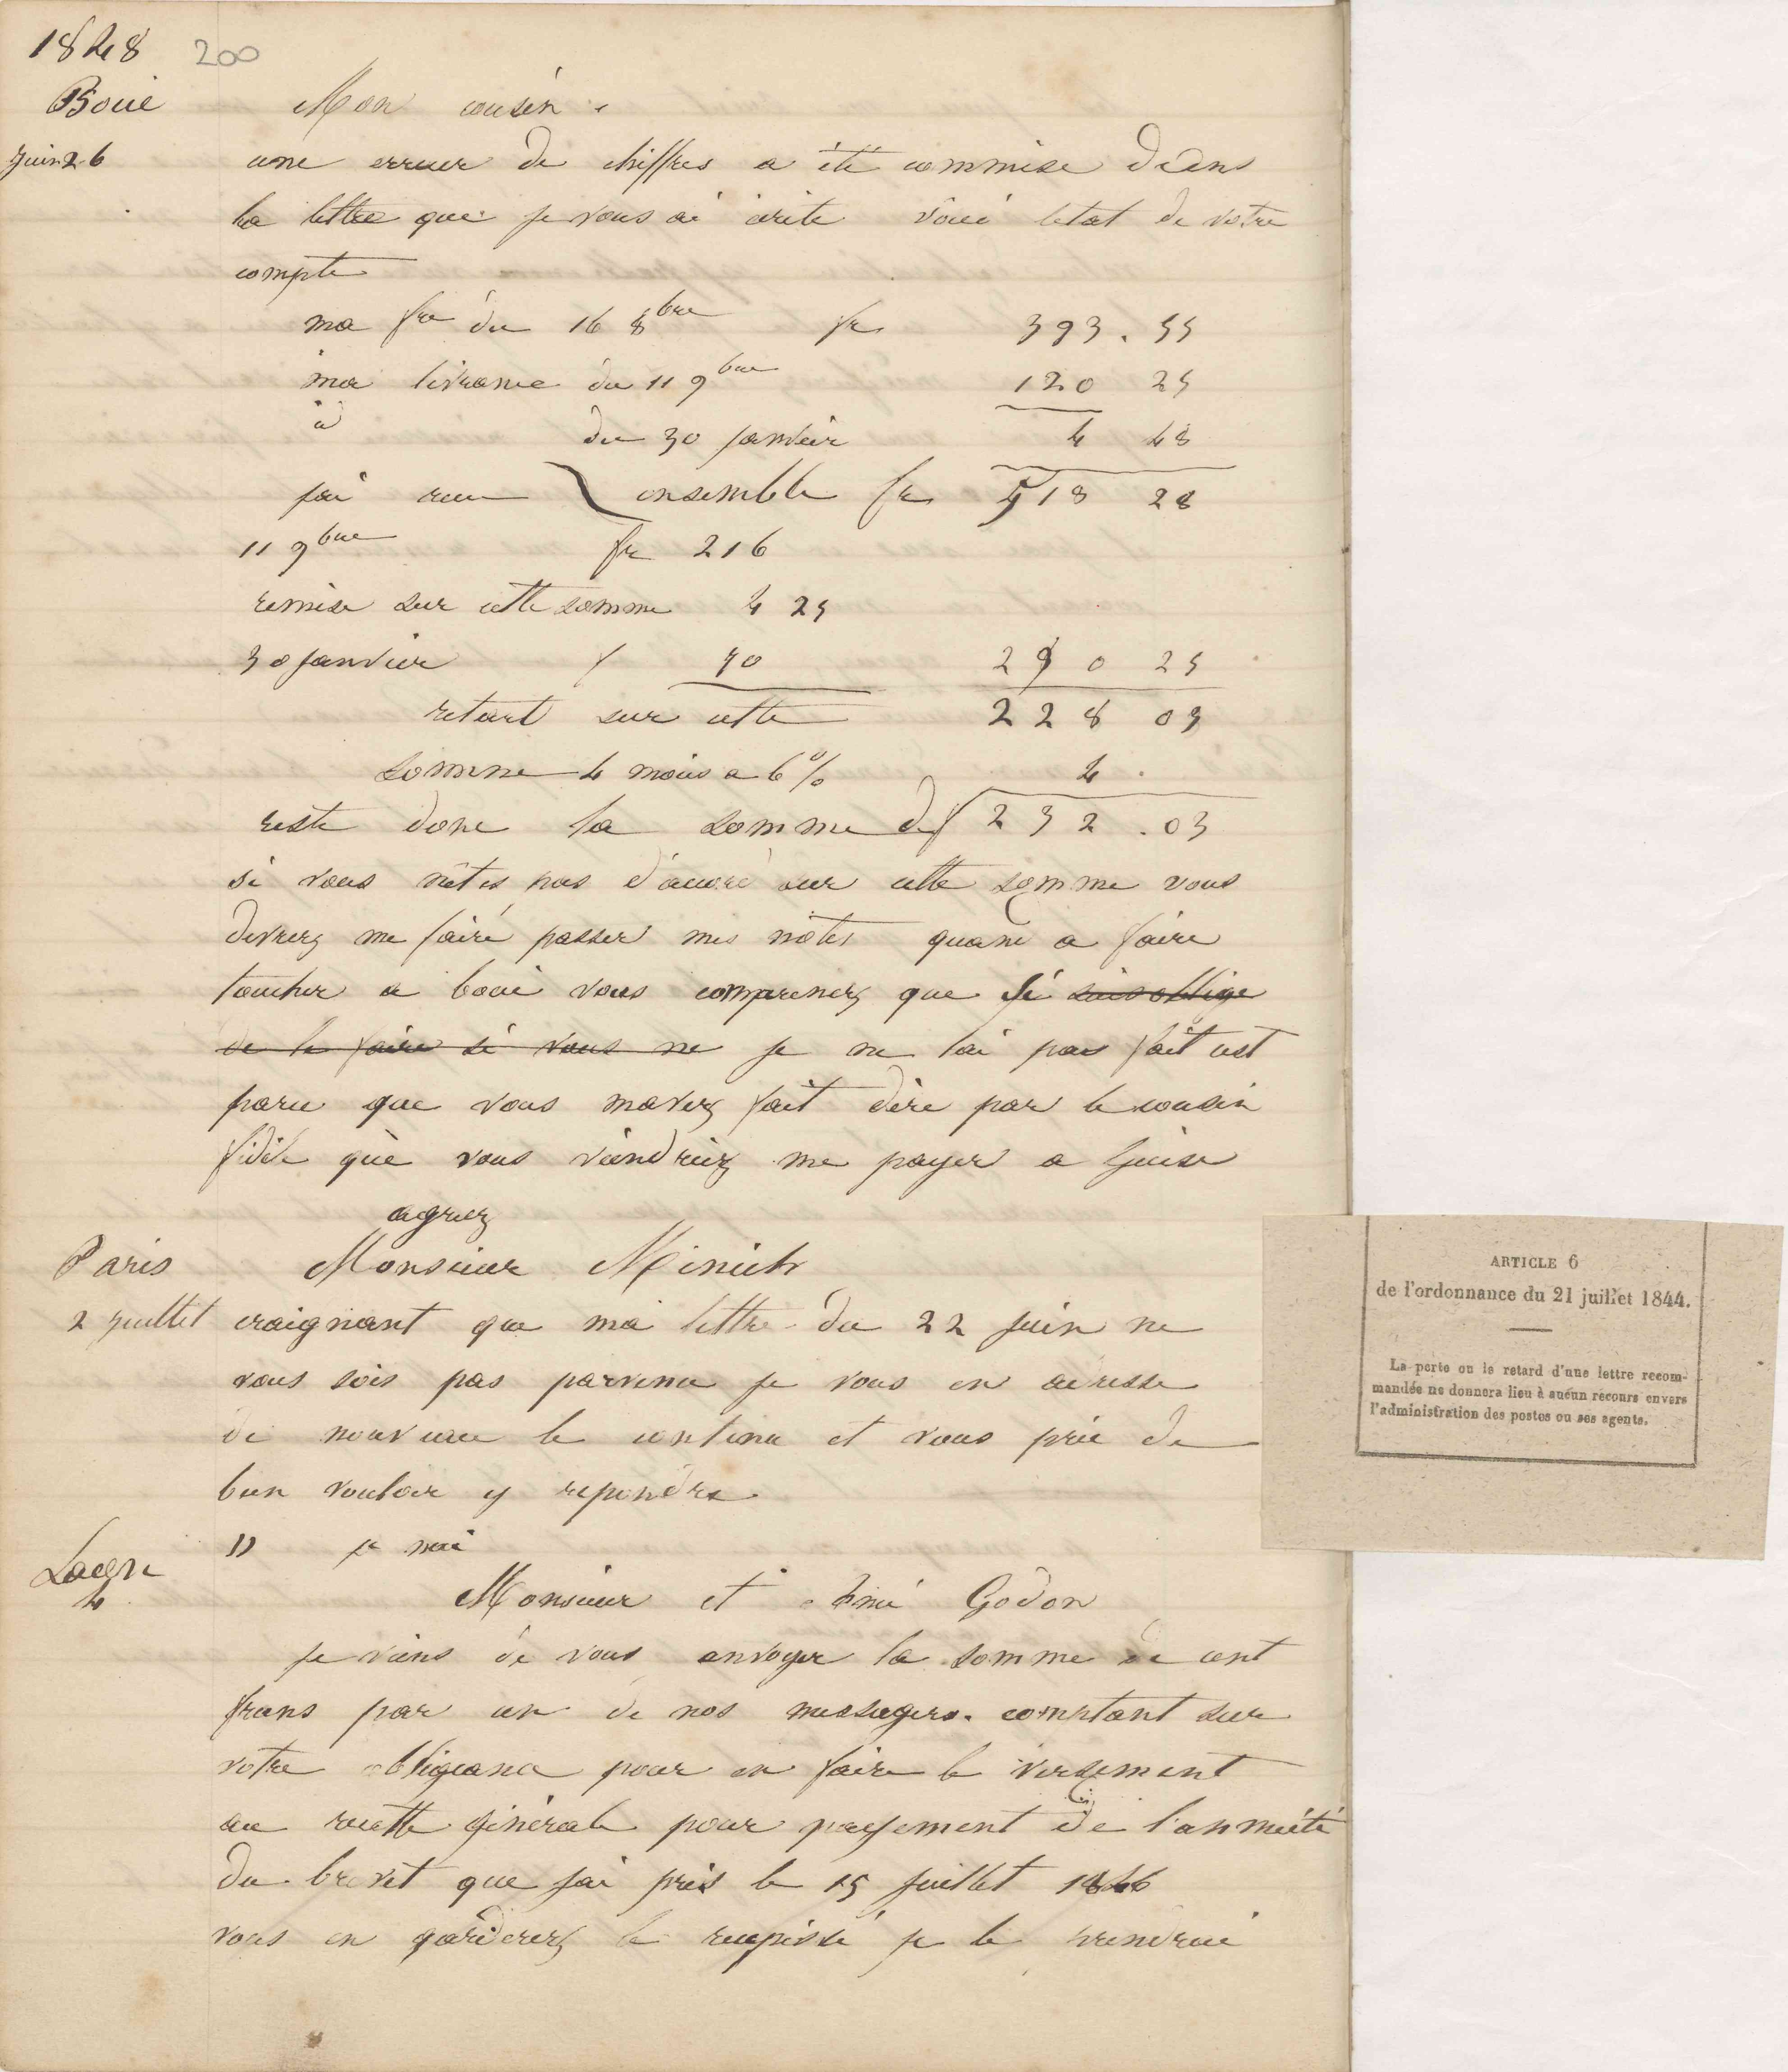 1848 200
Boué Mon cousin
Juin 26 une erreur de chiffres a été commise dans
la lettre que je vous ai ecrite voici letat de votre
compte
ma fre du 16 8bre fr 393.55
ma livranie du 11 9bre 120 25
id du 30 janvier 4 48
jai recu ensemble fr 518 28
11 9bre fr 216
remise sur cette somme 4 25
30 janvier f 70 290 25
retart sur cette 228 03
somme 4 mois a 6% 4
reste donc la somme de f 232.03
si vous nêtes pas d'accord sur cette somme vous
devrez me faire passer mes notes quand a faire
toucher a boué vous comprenez que si suis obligé
de le faire si vous ne je ne lai pas fait cest
parce que vous mavez fait dire par le cousin
fidele que vous viendriez me payer a Guise
agreez
Paris Monsieur Minich
2 juillet craignant que ma lettre du 22 juin ne
vous sois pas parvenu je vous en adresse
de nouveau le contenu et vous prie de
bien vouloir y repondre
" je nai
Laon
4 Monsieur et ami Godon
je viens de vous envoyer la somme de cent
frans par un de nos messagers. comptant sur
votre obligeance pour en faire le versement
au recette générale pour payement de l'annuité
du brevet que jai pris le 15 juillet 1846
vous en garderez le recepissé je le prendrai
ARTICLE 6
de l'ordonnance du 21 juillet 1844.
La perte ou le retard d'une lettre recom-
mandée ne donnera lieu à aucun recours envers
l'administration des postes ou ses agents.